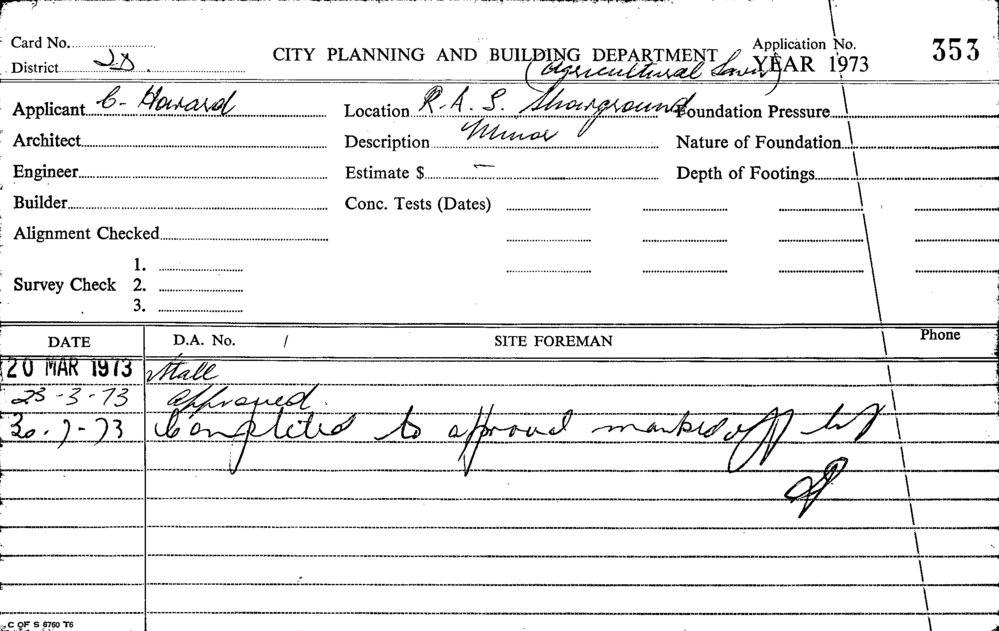 Card No. Application No. 353
District 2D. CITY PLANNING AND BUILDING DEPARTMENT YEAR 1973
(Agricultural
Applicant C. Howard Location R.A.S. Showground Foundation Pressure
Architect Description Minor Nature of Foundation
Engineer Estimate $ – Depth of Footings
Builder Conc. Tests (Dates)
Alignment Checked
Survey Check 1.
2.
3.
DATE D.A. No. / SITE FOREMAN Phone
20 MAR 1973 Stall
23-3-73 Approved.
30.7-73 Completed to approval marked off list
C OF S 6760 T6